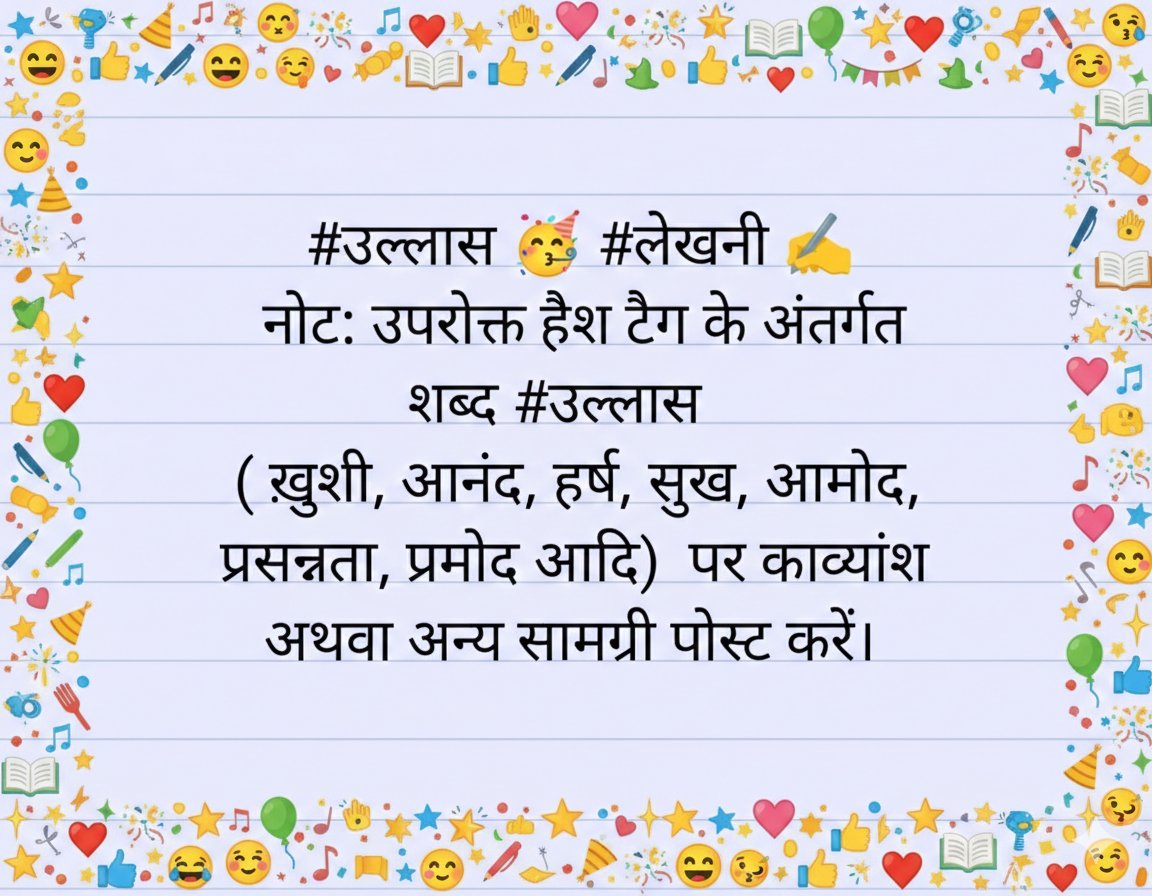 #उल्लास 🥳 #लेखनी ✍️
नोट: उपरोक्त हैश टैग के अंतर्गत
शब्द #उल्लास
( ख़ुशी, आनंद, हर्ष, सुख, आमोद,
प्रसन्नता, प्रमोद आदि) पर काव्यांश
अथवा अन्य सामग्री पोस्ट करें।